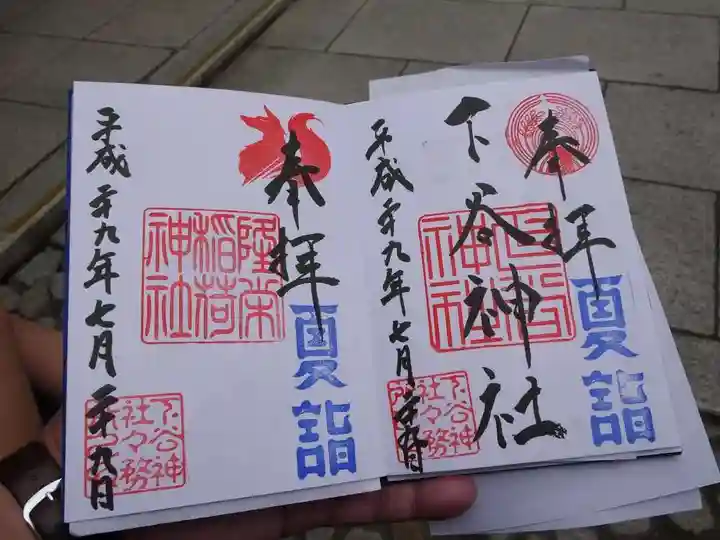 奉拝
夏詣
下谷神社
下谷神社
平成二十九年七月二十九日
下谷神
社々務
奉拝
夏詣
隆栄
稲荷
神社
平成二十九年七月二十九日
下谷神
社々務